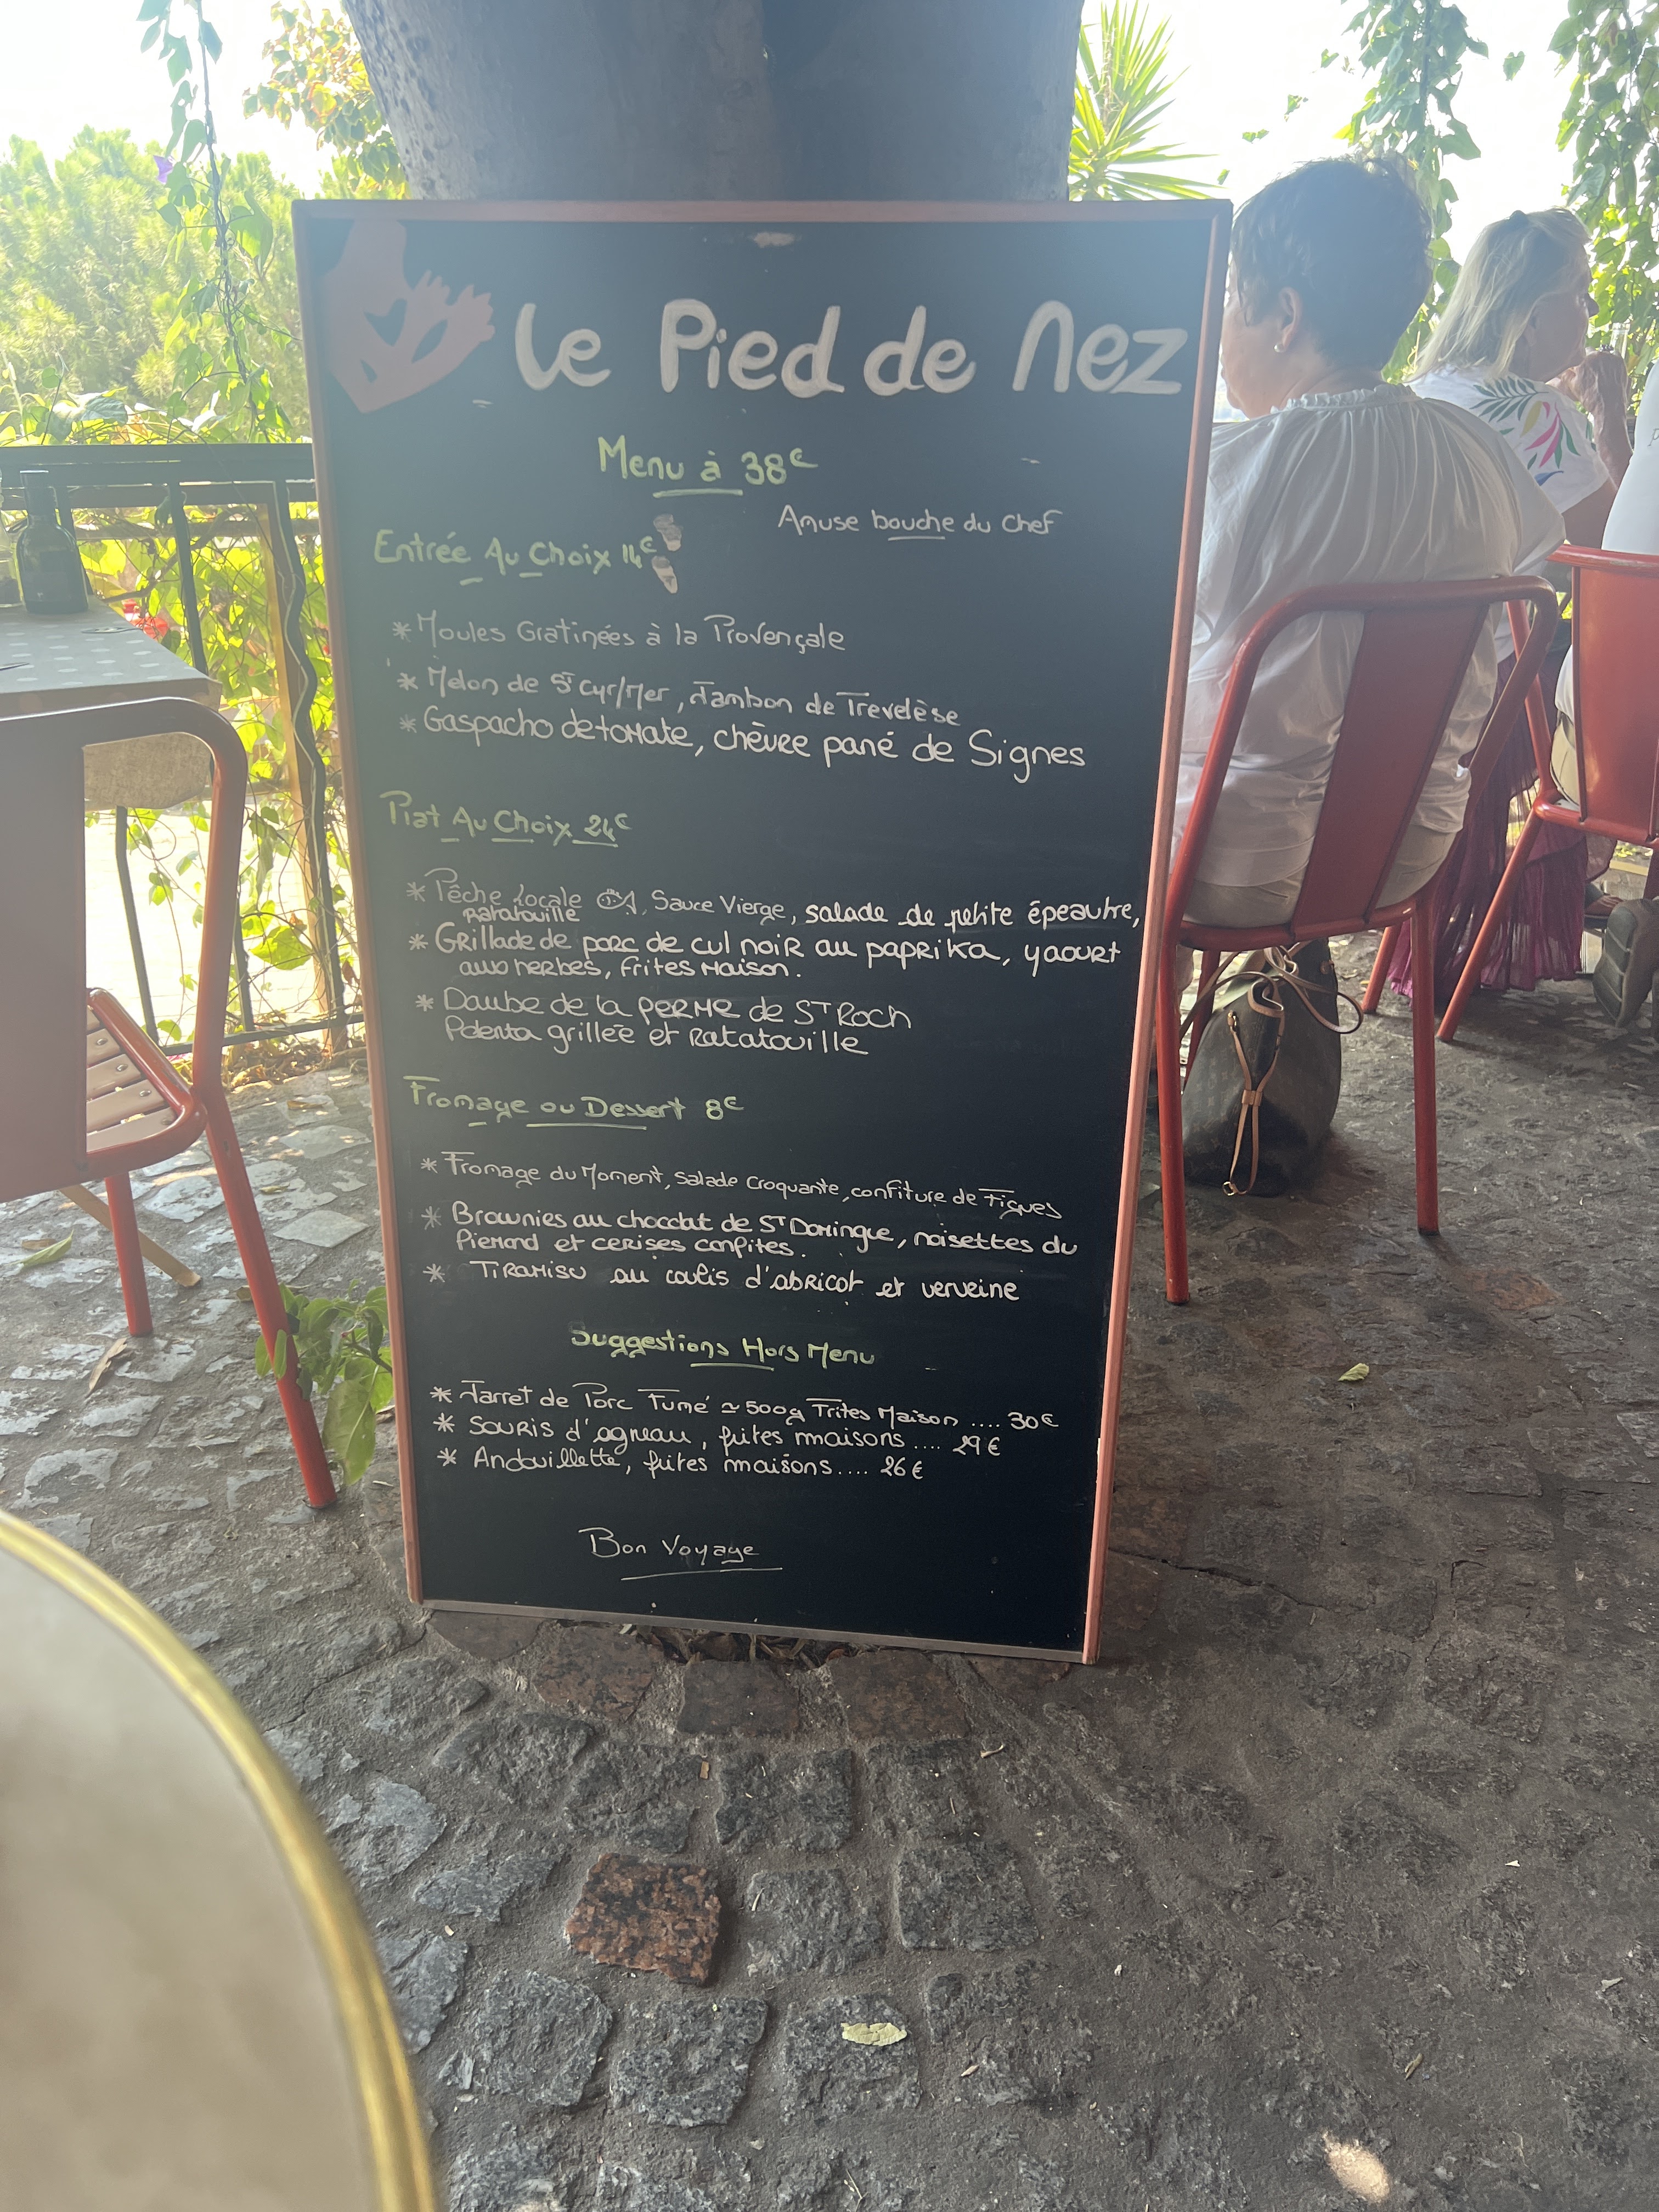 Le Pied de Nez
Menu à 38€
Amuse bouche du Chef
Entrée Au Choix 14€
* Moules Gratinées à la Provençale
* Melon de St Cyr/Mer, Jambon de Trevelèse
* Gaspacho de tomate, chèvre pané de Signes
Plat Au Choix 24€
* Pêche Locale, Sauce Vierge, salade de petite épeautre,
Ratatouille
* Grillade de porc de cul noir au paprika, yaourt
aux herbes, frites maison.
* Daube de la ferme de ST Roch
Polenta grillée et Ratatouille
Fromage ou Dessert 8€
* Fromage du Moment, salade Croquante, confiture de Figues
* Brownies au chocolat de ST Domingue, noisettes du
Piemond et cerises confites.
* Tiramisu au coulis d'abricot et verveine
Suggestions Hors Menu
* Jarret de Porc Fumé ≃ 500g Frites Maison .... 30€
* Souris d'agneau, frites maisons .... 29€
* Andouillette, frites maisons .... 26€
Bon Voyage